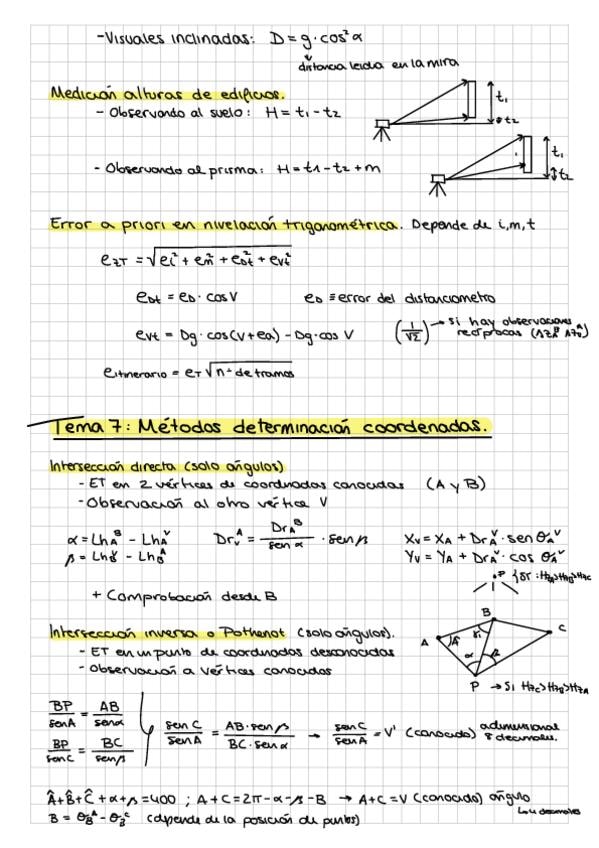 -Visuales inclinadas: D = g·cos²α
distancia leida en la mira
Medición alturas de edificios.
- Observando al suelo: H = t₁ - t₂
t₁
t₂
- Observando al prisma: H = t₁ - t₂ + m
t₁
t₂
Error a priori en nivelación trigonométrica. Depende de i,m,t
e_ZT = √(ei² + em² + e_Dt² + e_Vt²)
e_Dt = e_D · cos V    e_D ≡ error del distanciometro
e_Vt = Dg·cos(V+ea) - Dg·cos V    (1/√2) → Si hay observaciones
recíprocas
e_itinerario = e_T √nº de tramos
Tema 7: Métodos determinación coordenadas.
Intersección directa (solo ángulos)
- ET en 2 vértices de coordenadas conocidas (A y B)
- Observación al otro vértice V
α = Lh_A^B - Lh_A^V    Dr_A^V = Dr_A^B / sen α · sen β    X_V = X_A + Dr_A^V · sen θ_A^V
β = Lh_B^V - Lh_B^A    Y_V = Y_A + Dr_A^V · cos θ_A^V
+ Comprobación desde B
Intersección inversa o Pothenot (solo ángulos).
- ET en un punto de coordenadas desconocidas
- Observación a vértices conocidos
A
B
C
α
β
P → Si Hz_C > Hz_B > Hz_A
BP/senA = AB/senα
BP/senC = BC/senβ
senC/senA = AB·senβ / BC·senα → senC/senA = V' (conocido) adimensional
8 decimales.
Â + B̂ + Ĉ + α + β = 400 ; A + C = 2π - α - β - B → A + C = V (conocido) ángulo
4 decimales
B = θ_B^A - θ_B^C (depende de la posición de puntos)